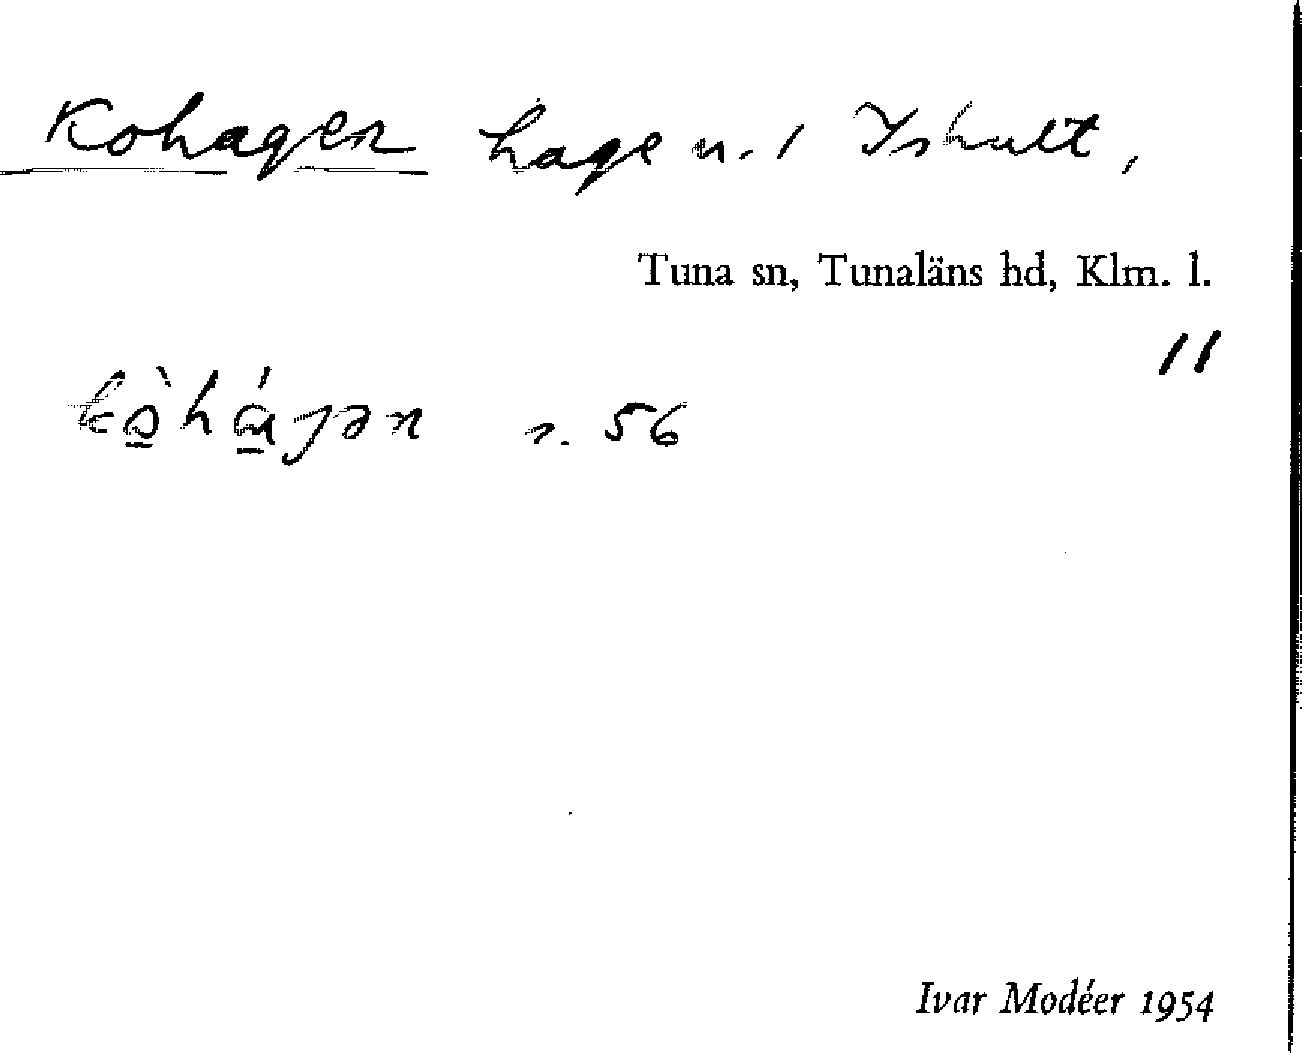 Kohagen hage u. 1 Ishult,
Tuna sn, Tunaläns hd, Klm. l.
11
s. 56
Ivar Modéer 1954